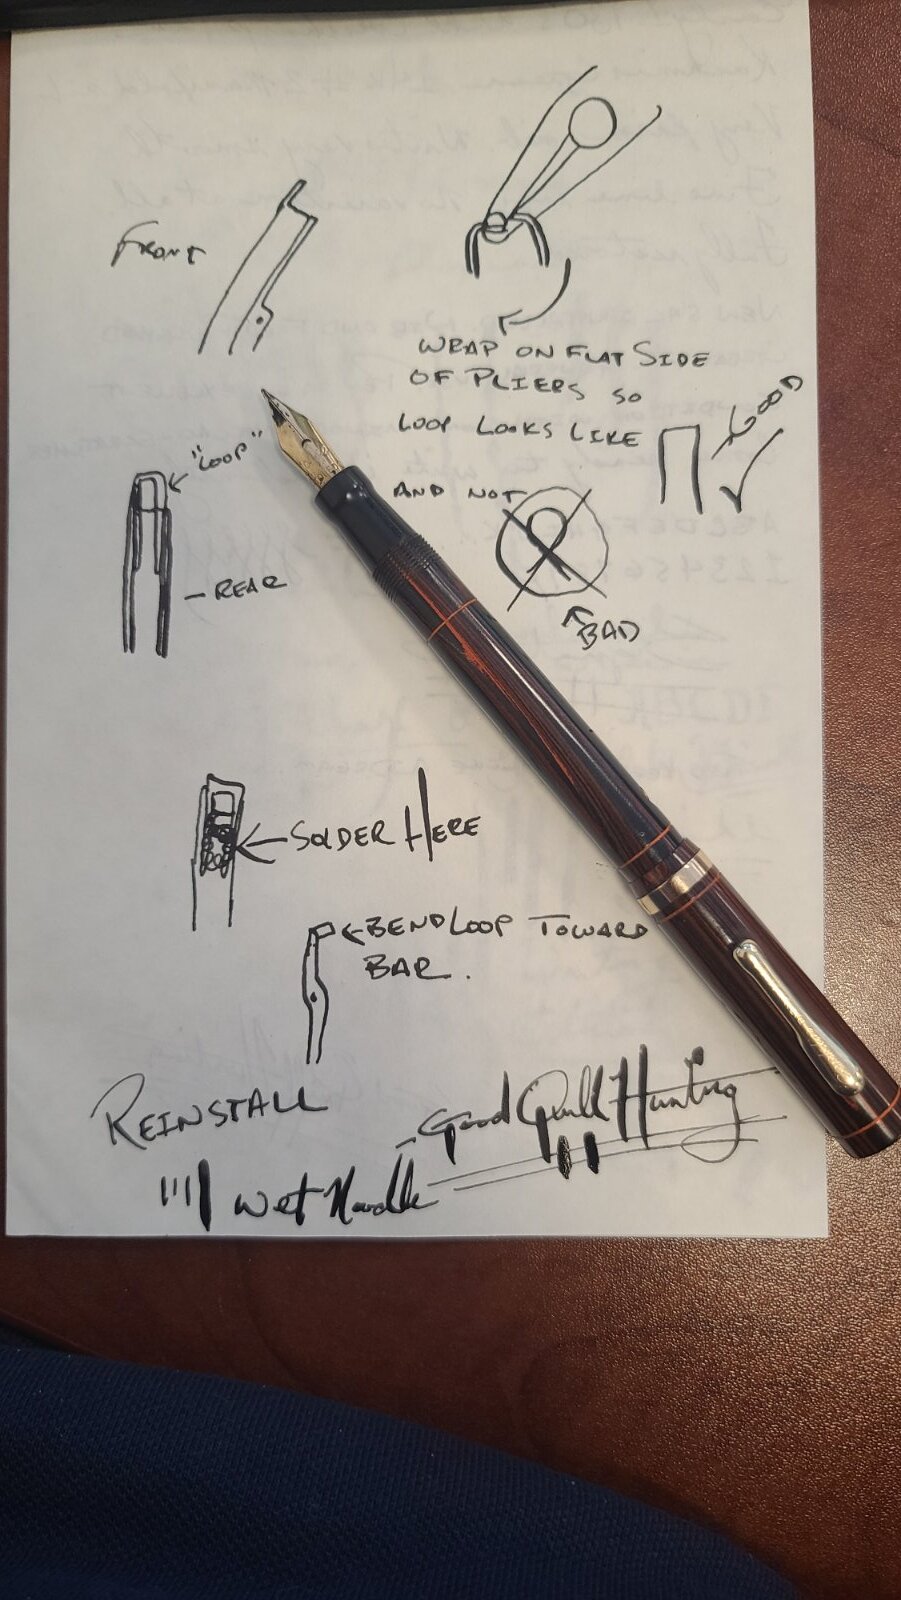 FRONT
WRAP ON FLAT SIDE
OF PLIERS SO
LOOP LOOKS LIKE
GOOD
AND NOT
BAD
"LOOP"
- REAR
SOLDER HERE
BEND LOOP TOWARD
BAR.
REINSTALL
- Good Quill Hunting
wet Noodle